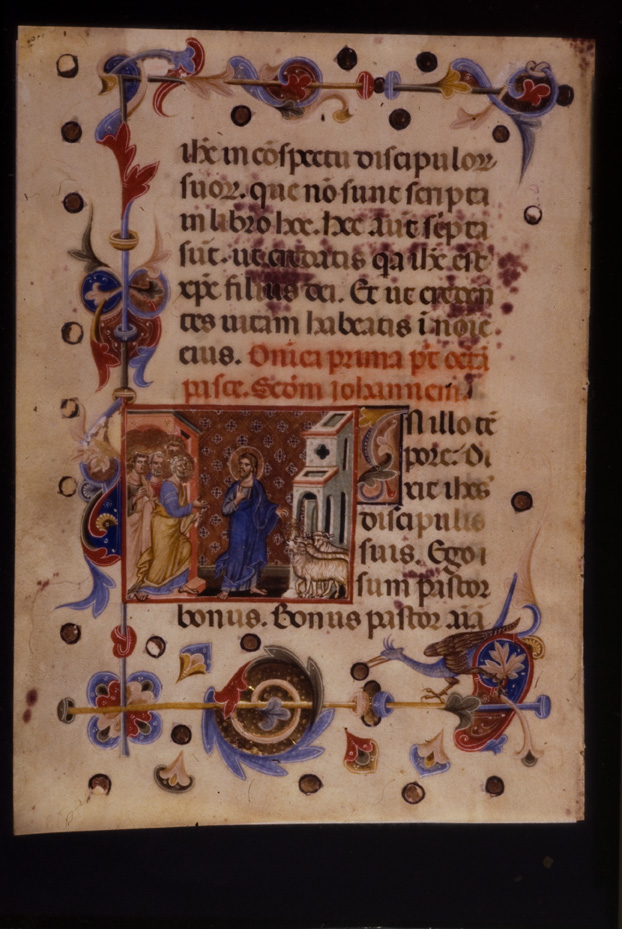 ihc in cōspectu discipulor
suor. que nō sunt scripta
in libro hoc. hec aut scp̄ta
sūt. ut credatis qa ihc est
xpc filius dei. Et ut creden
tes uitam habeatis ī noīe
eius. Dnica prima pt octā
pasce. Scdm iohannem.
In illo tē
pore. Di
xit ihes
discipulis
suis. Ego
sum pastor
bonus. Bonus pastor aīā